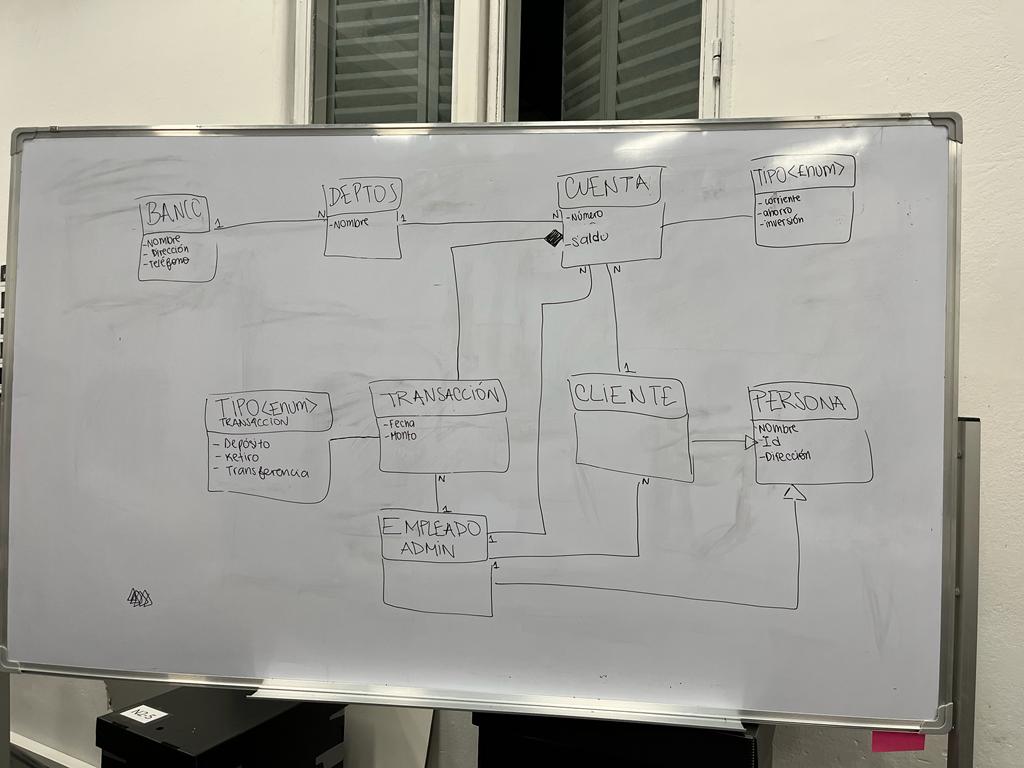 BANCO
-Nombre
- Dirección
-Teléfono
1
N
DEPTOS
-Nombre
1
N
CUENTA
-Número
-Saldo
N
N
TIPO<ENUM>
- corriente
-ahorro
-inversión
TIPO<ENUM>
TRANSACCIÓN
- Depósito
- Retiro
- Transferencia
TRANSACCIÓN
-Fecha
-Monto
N
1
CLIENTE
1
N
PERSONA
Nombre
-Id
-Dirección
1
EMPLEADO
ADMIN
1
1
N2-5